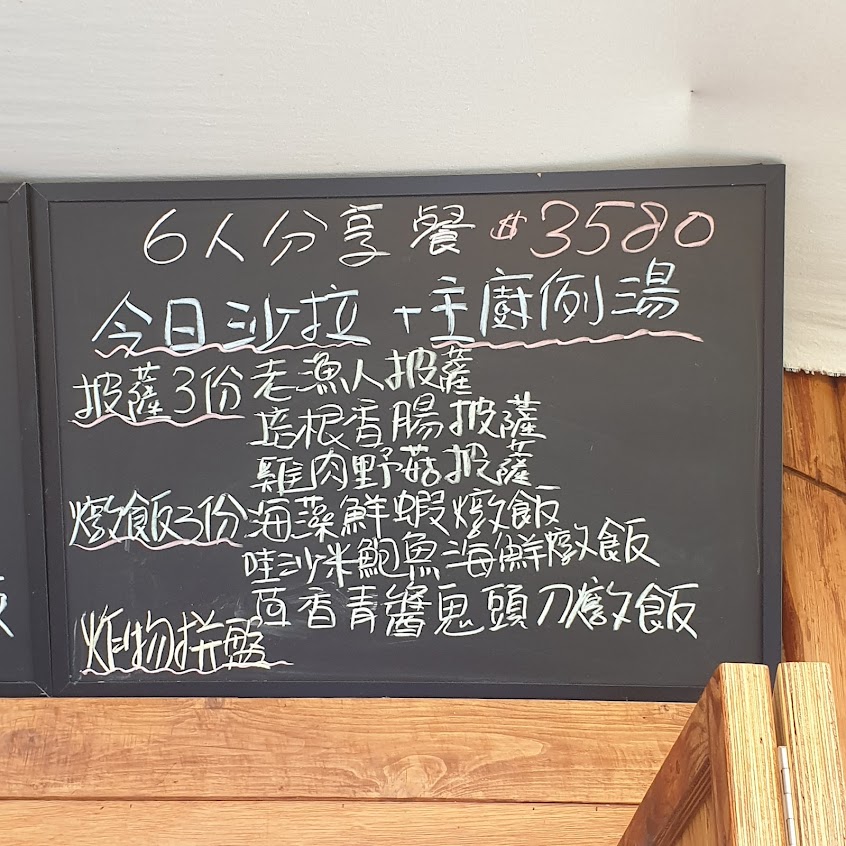 6人分享餐 $3580
今日沙拉+主廚例湯
披薩3份 老漁人披薩
培根香腸披薩
雞肉野菇披薩
燉飯3份 海藻鮮蝦燉飯
哇沙米鮑魚海鮮燉飯
茴香青醬鬼頭刀燉飯
炸物拼盤